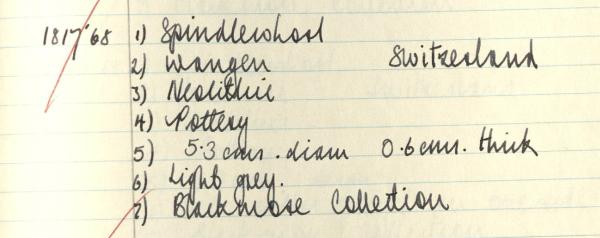 1817'68 1) Spindlewhorl
2) Wangen Switzerland
3) Neolithic
4) Pottery
5) 5.3 cms. diam 0.6 cms. thick
6) Light grey.
7) Blackmore Collection